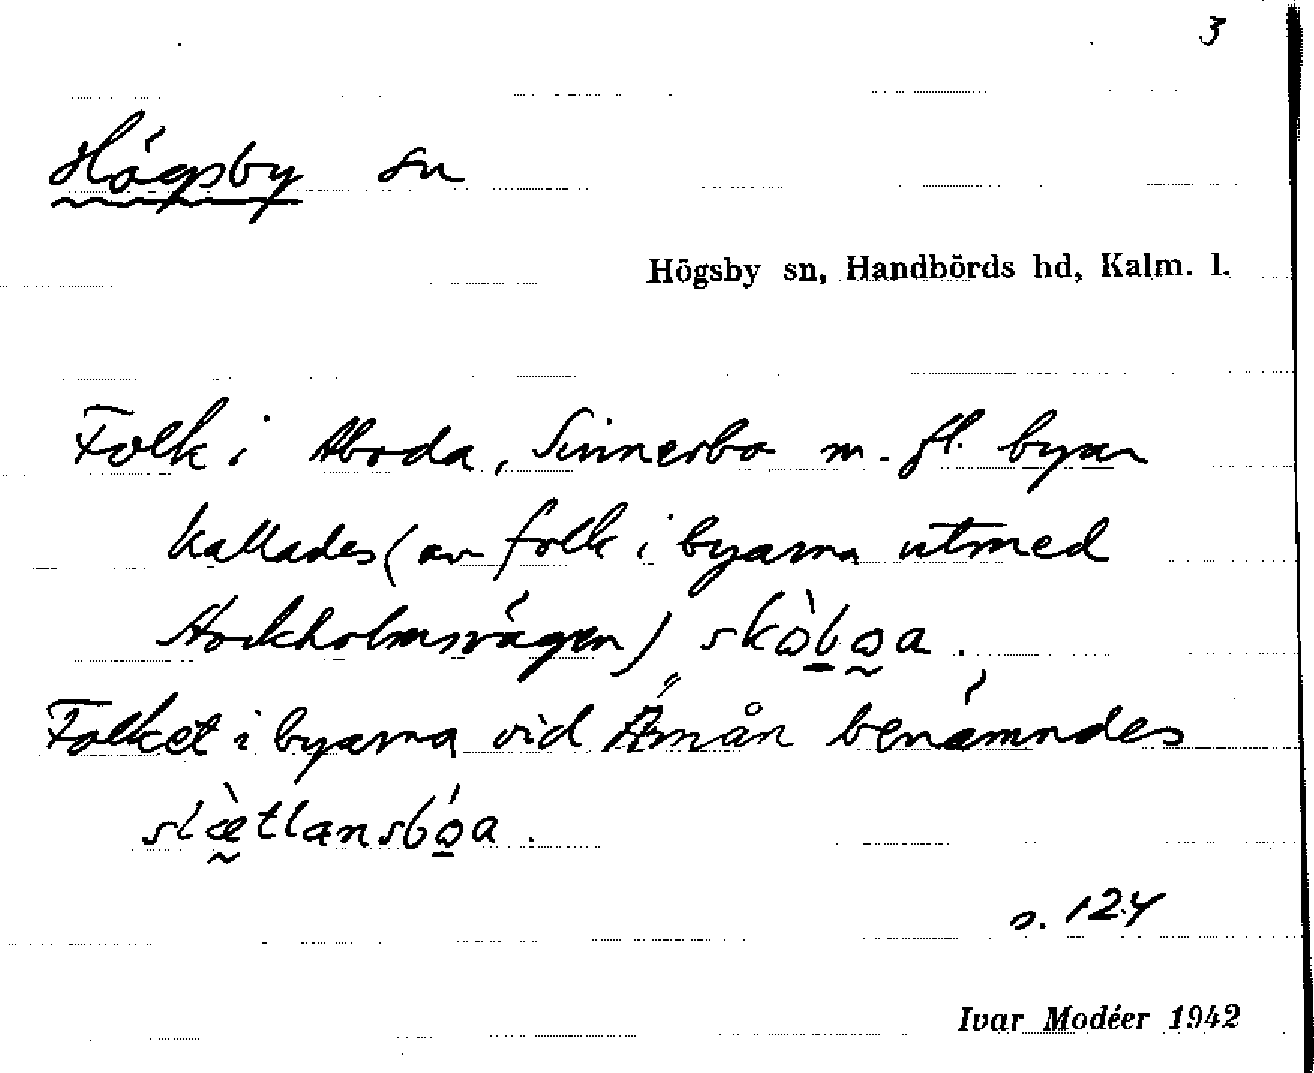 3
Högsby sn
Högsby sn, Handbörds hd, Kalm. l.
Folk i Aboda, Sinnerbo m. fl. byar
kallades (av folk i byarna utmed
Stockholmsvägen)
Folket i byarna vid Ämån benämndes
s. 124
Ivar Modéer 1942